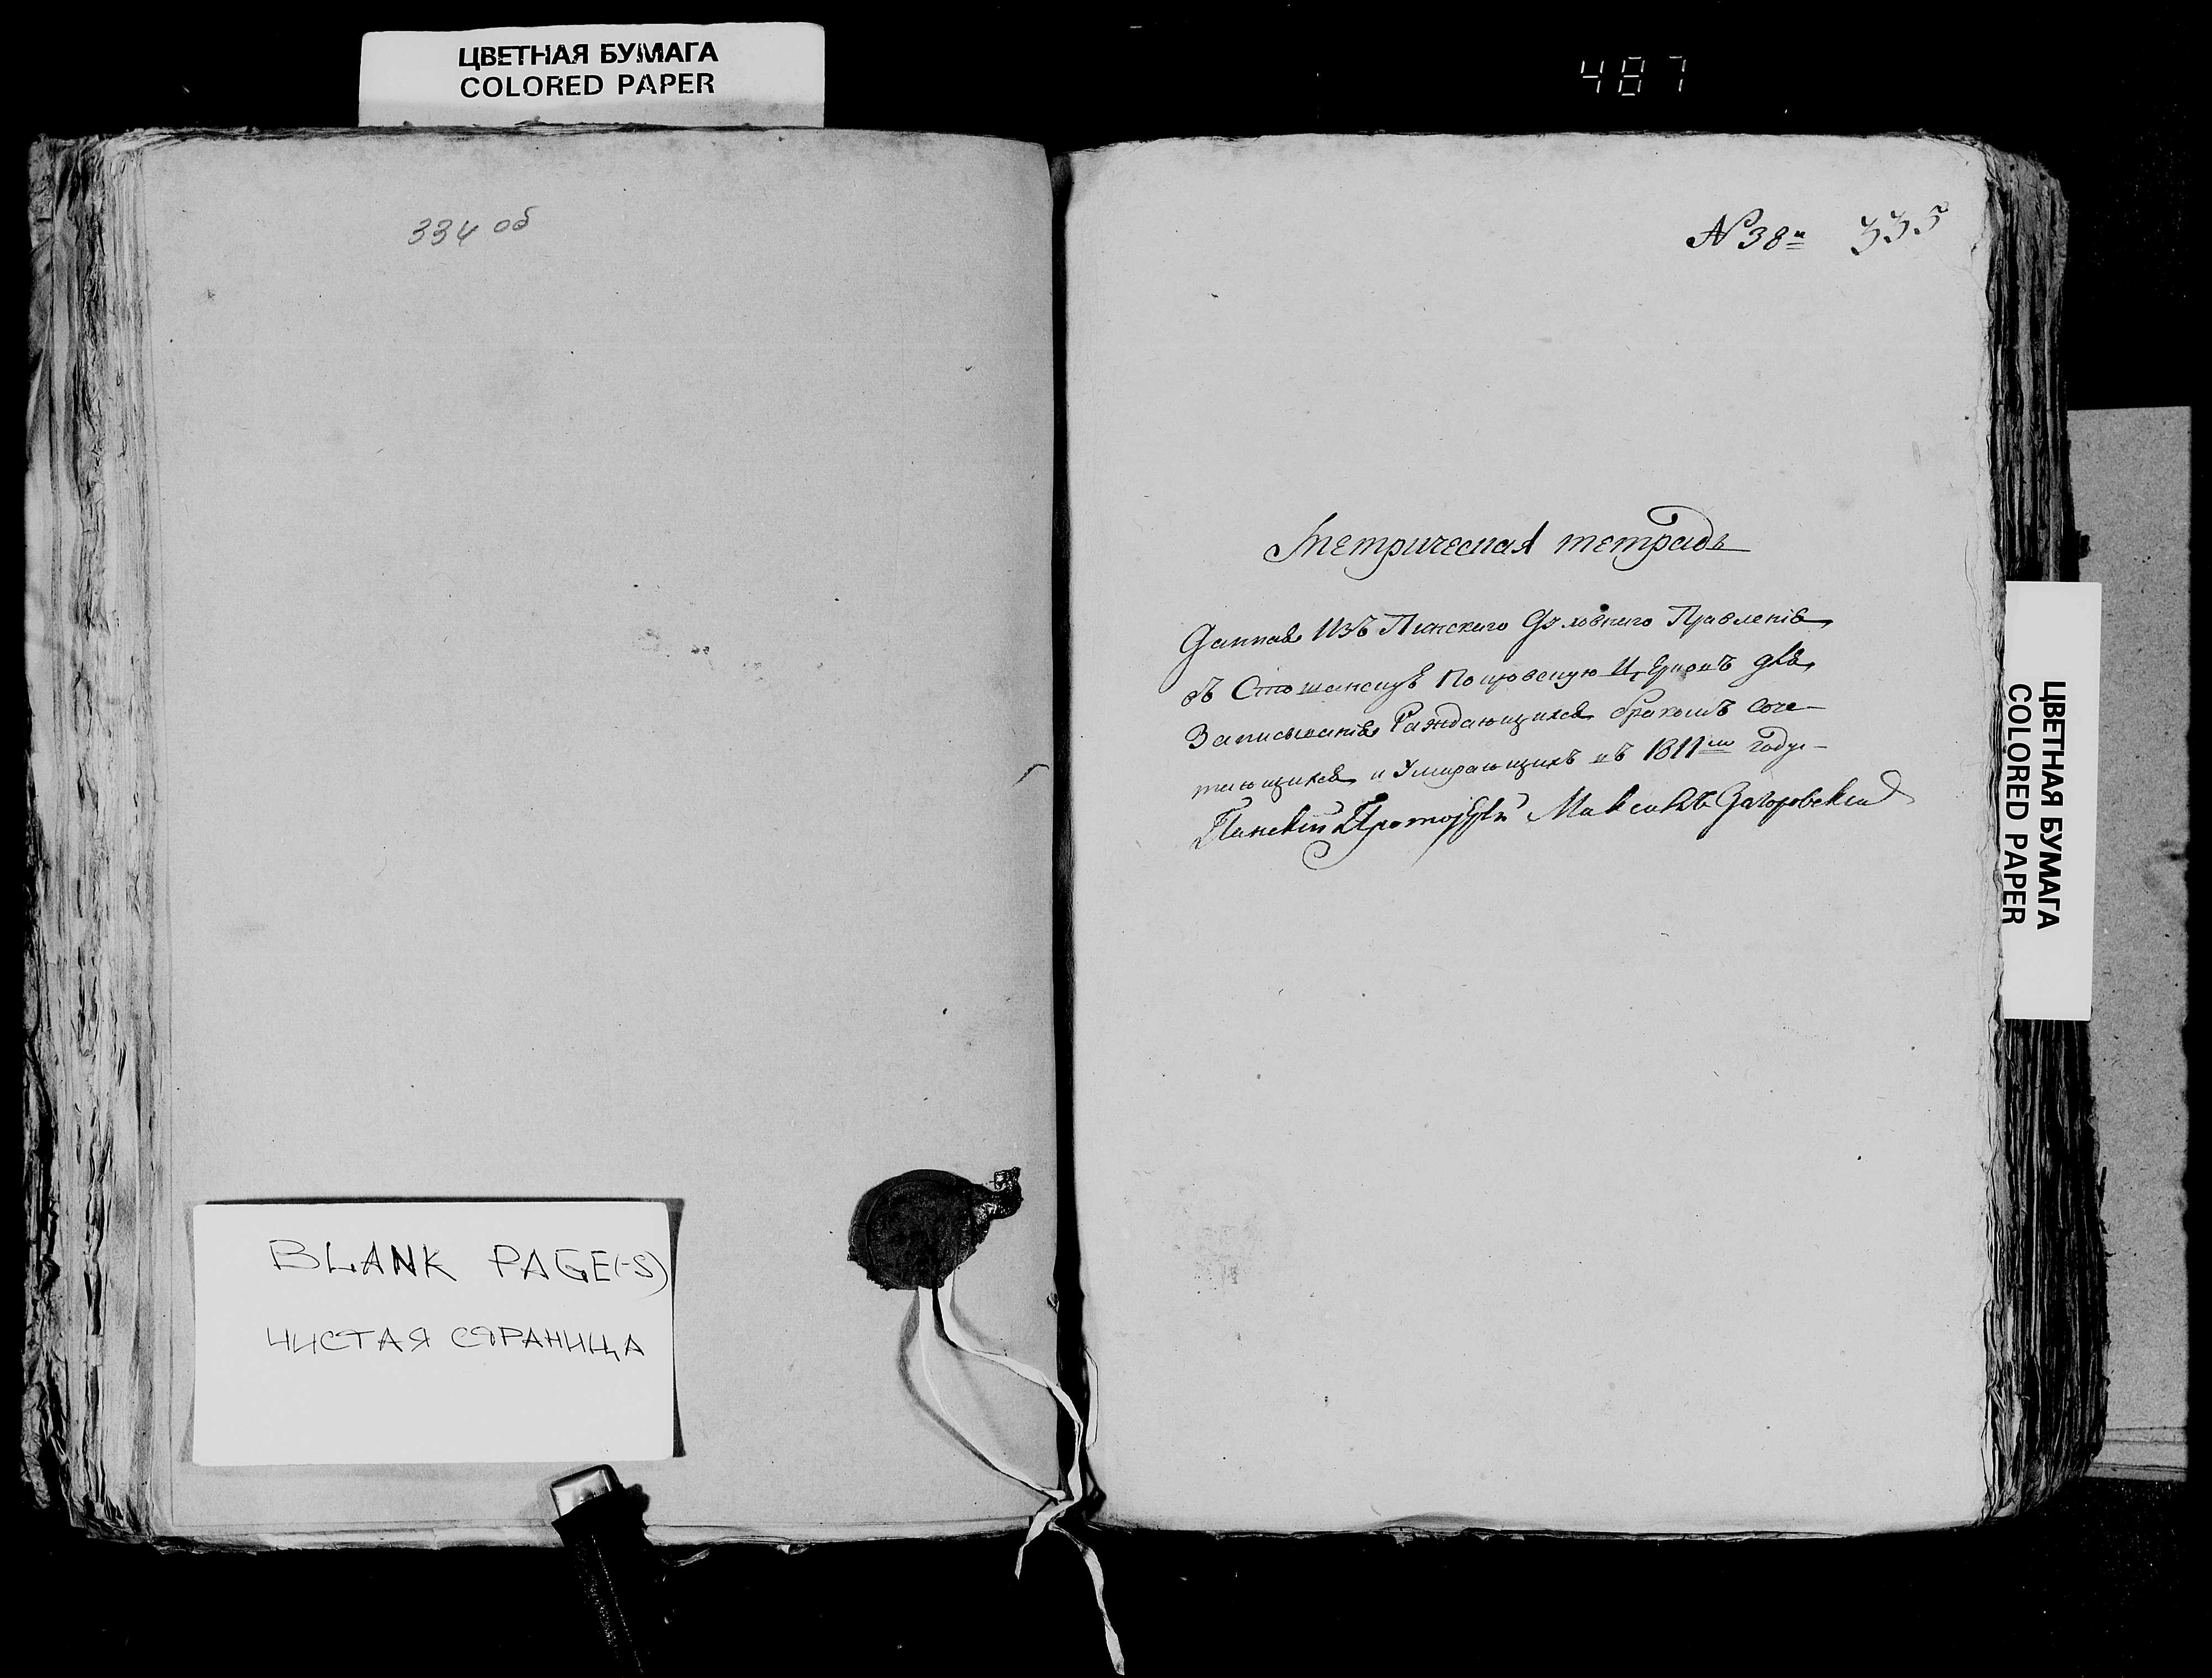 ЦВЕТНАЯ БУМАГА
COLORED PAPER
487
334 об
BLANK PAGE(-S)
ЧИСТАЯ СТРАНИЦА
N 38й 335
Метрическая тетрадь
Данная Изъ Пинскаго Духовнаго Правленія
въ Покровскую Церковь для
Записыванія Раждающихся бракомъ Соче-
тающихся и Умирающихъ въ 1811мъ году
Пинскій Протоіерей Максимъ Загоровскій
ЦВЕТНАЯ БУМАГА
COLORED PAPER